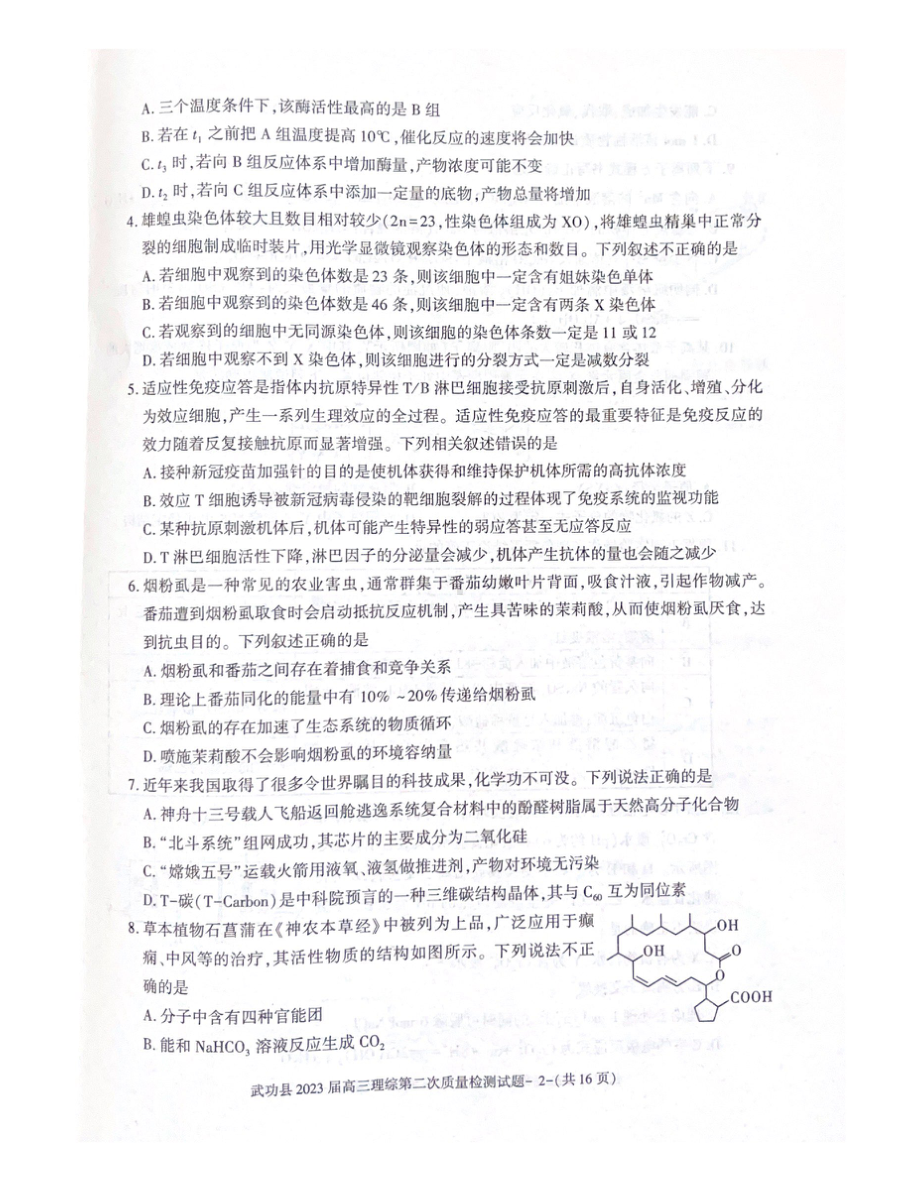 A.三个温度条件下,该酶活性最高的是B组
B.若在t₁之前把A组温度提高10℃,催化反应的速度将会加快
C.t₃时,若向B组反应体系中增加酶量,产物浓度可能不变
D.t₂时,若向C组反应体系中添加一定量的底物,产物总量将增加
4.雄蝗虫染色体较大且数目相对较少(2n=23,性染色体组成为XO),将雄蝗虫精巢中正常分
裂的细胞制成临时装片,用光学显微镜观察染色体的形态和数目。下列叙述不正确的是
A.若细胞中观察到的染色体数是23条,则该细胞中一定含有姐妹染色单体
B.若细胞中观察到的染色体数是46条,则该细胞中一定含有两条X染色体
C.若观察到的细胞中无同源染色体,则该细胞的染色体条数一定是11或12
D.若细胞中观察不到X染色体,则该细胞进行的分裂方式一定是减数分裂
5.适应性免疫应答是指体内抗原特异性T/B淋巴细胞接受抗原刺激后,自身活化、增殖、分化
为效应细胞,产生一系列生理效应的全过程。适应性免疫应答的最重要特征是免疫反应的
效力随着反复接触抗原而显著增强。下列相关叙述错误的是
A.接种新冠疫苗加强针的目的是使机体获得和维持保护机体所需的高抗体浓度
B.效应T细胞诱导被新冠病毒侵染的靶细胞裂解的过程体现了免疫系统的监视功能
C.某种抗原刺激机体后,机体可能产生特异性的弱应答甚至无应答反应
D.T淋巴细胞活性下降,淋巴因子的分泌量会减少,机体产生抗体的量也会随之减少
6.烟粉虱是一种常见的农业害虫,通常群集于番茄幼嫩叶片背面,吸食汁液,引起作物减产。
番茄遭到烟粉虱取食时会启动抵抗反应机制,产生具苦味的茉莉酸,从而使烟粉虱厌食,达
到抗虫目的。下列叙述正确的是
A.烟粉虱和番茄之间存在着捕食和竞争关系
B.理论上番茄同化的能量中有10%~20%传递给烟粉虱
C.烟粉虱的存在加速了生态系统的物质循环
D.喷施茉莉酸不会影响烟粉虱的环境容纳量
7.近年来我国取得了很多令世界瞩目的科技成果,化学功不可没。下列说法正确的是
A.神舟十三号载人飞船返回舱逃逸系统复合材料中的酚醛树脂属于天然高分子化合物
B.“北斗系统”组网成功,其芯片的主要成分为二氧化硅
C.“嫦娥五号”运载火箭用液氧、液氢做推进剂,产物对环境无污染
D.T-碳(T-Carbon)是中科院预言的一种三维碳结构晶体,其与C₆₀互为同位素
8.草本植物石菖蒲在《神农本草经》中被列为上品,广泛应用于癫
痫、中风等的治疗,其活性物质的结构如图所示。下列说法不正
确的是
OH
OH
O
O
COOH
A.分子中含有四种官能团
B.能和NaHCO₃溶液反应生成CO₂
武功县2023届高三理综第二次质量检测试题-2-(共16页)